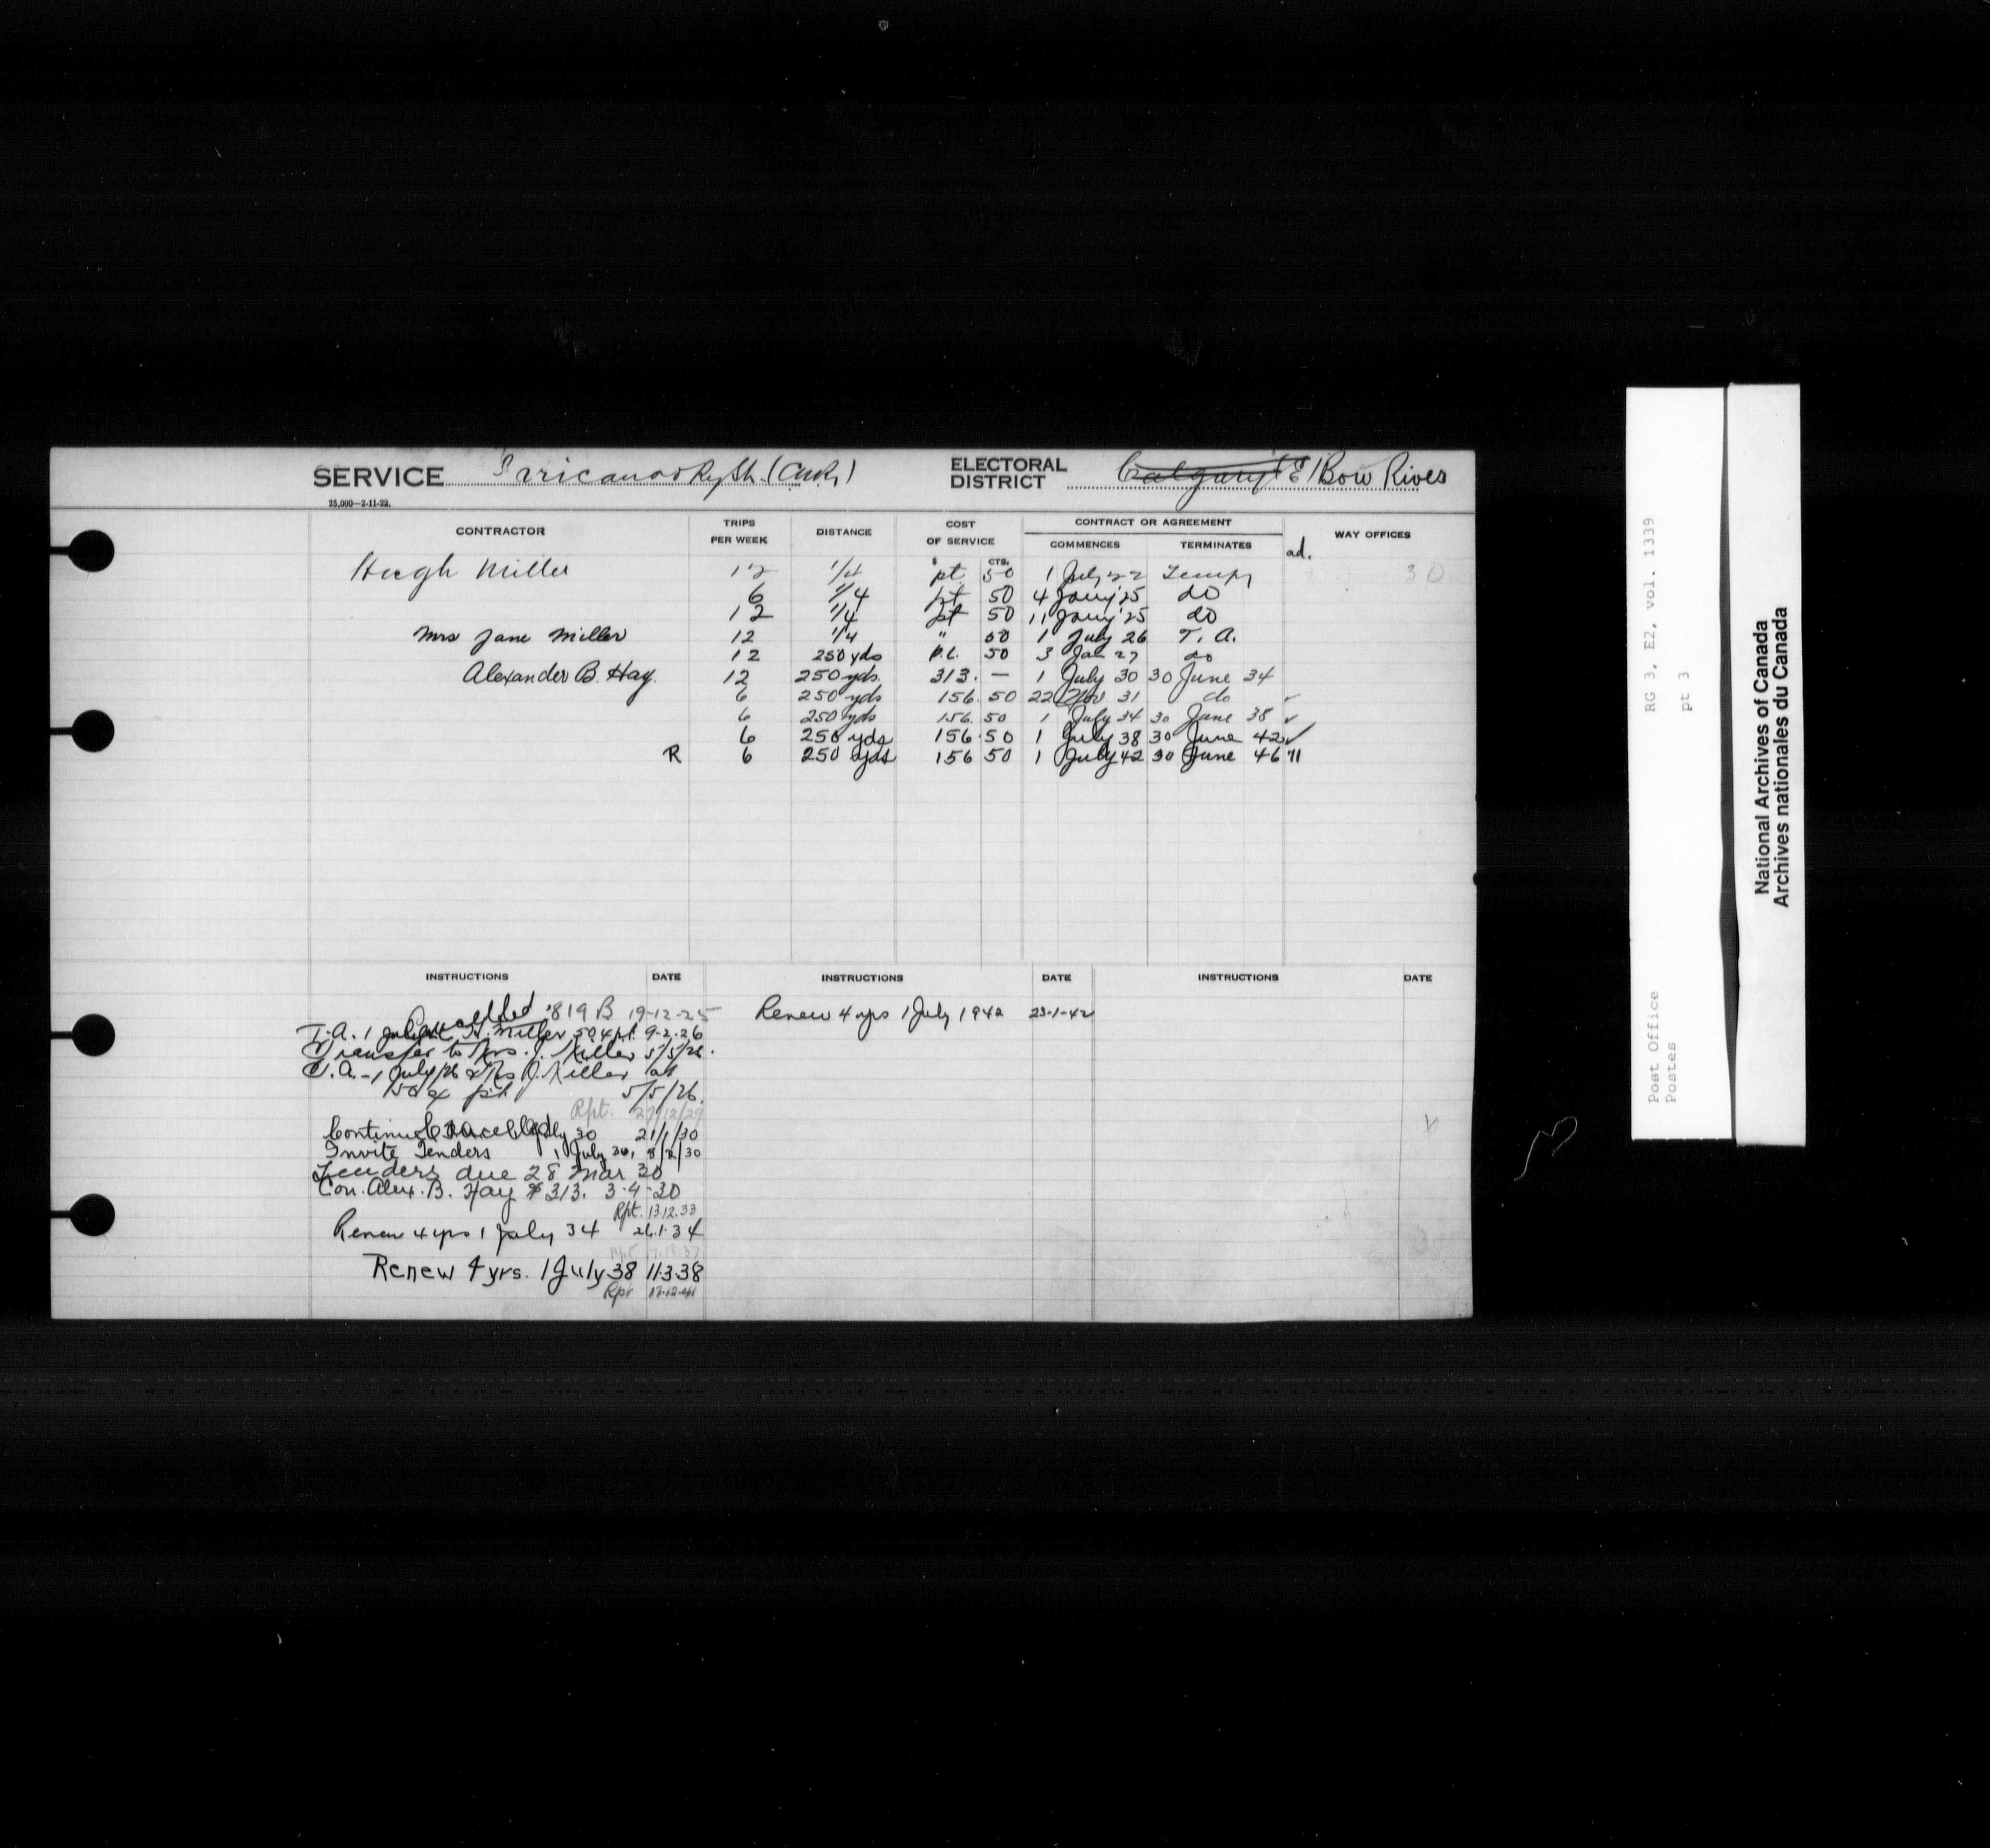 SERVICE Irricana & Ry Stn. (CNR) ELECTORAL DISTRICT Calgary E Bow River
25,000—2-11-22.
CONTRACTOR TRIPS PER WEEK DISTANCE COST OF SERVICE CONTRACT OR AGREEMENT COMMENCES TERMINATES WAY OFFICES
$ CTS. ad.
Hugh Miller 12 1/4 pt. 50 1 July 22 Tempy 30
6 1/4 pt 50 4 Jany '25 do
12 1/4 pt 50 11 Jany '25 do
Mrs Jane Miller 12 1/4 " 50 1 July 26 T. A.
12 250 yds 50 3 Jan 27 do
Alexander B. Hay. 12 250 yds. 313. — 1 July 30 30 June 34
6 250 yds 156. 50 22 Nov 31 do ✓
6 250 yds 156. 50 1 July 34 30 June 38 ✓
6 250 yds 156. 50 1 July 38 30 June 42 ✓
R 6 250 yds 156 50 1 July 42 30 June 46
INSTRUCTIONS DATE INSTRUCTIONS DATE INSTRUCTIONS DATE
Cancelled 819 B 19-12-25 Renew 4 yrs 1 July 1942 23-1-42
T.A. 1 H. Miller 50¢ pt. 9-2-26
Transfer to Mrs. J. Miller 5/5/26.
T.A. - 1 July/26 Mrs J. Miller at
50¢ pt 5/5/26.
Rpt. 27/12/29
Continue Cancelled July 30 21/1/30
Invite Tenders 1 July 30, 8/2/30
Tenders due 28 Mar 30
Con. Alex. B. Hay $313. 3-4-30
Rpt. 13.12.33
Renew 4 yrs 1 July 34 26.1.34
Renew 4 yrs. 1 July 38 11.3.38
Rpt
RG 3, E2, vol. 1339
pt 3
Post Office
Postes
National Archives of Canada
Archives nationales du Canada